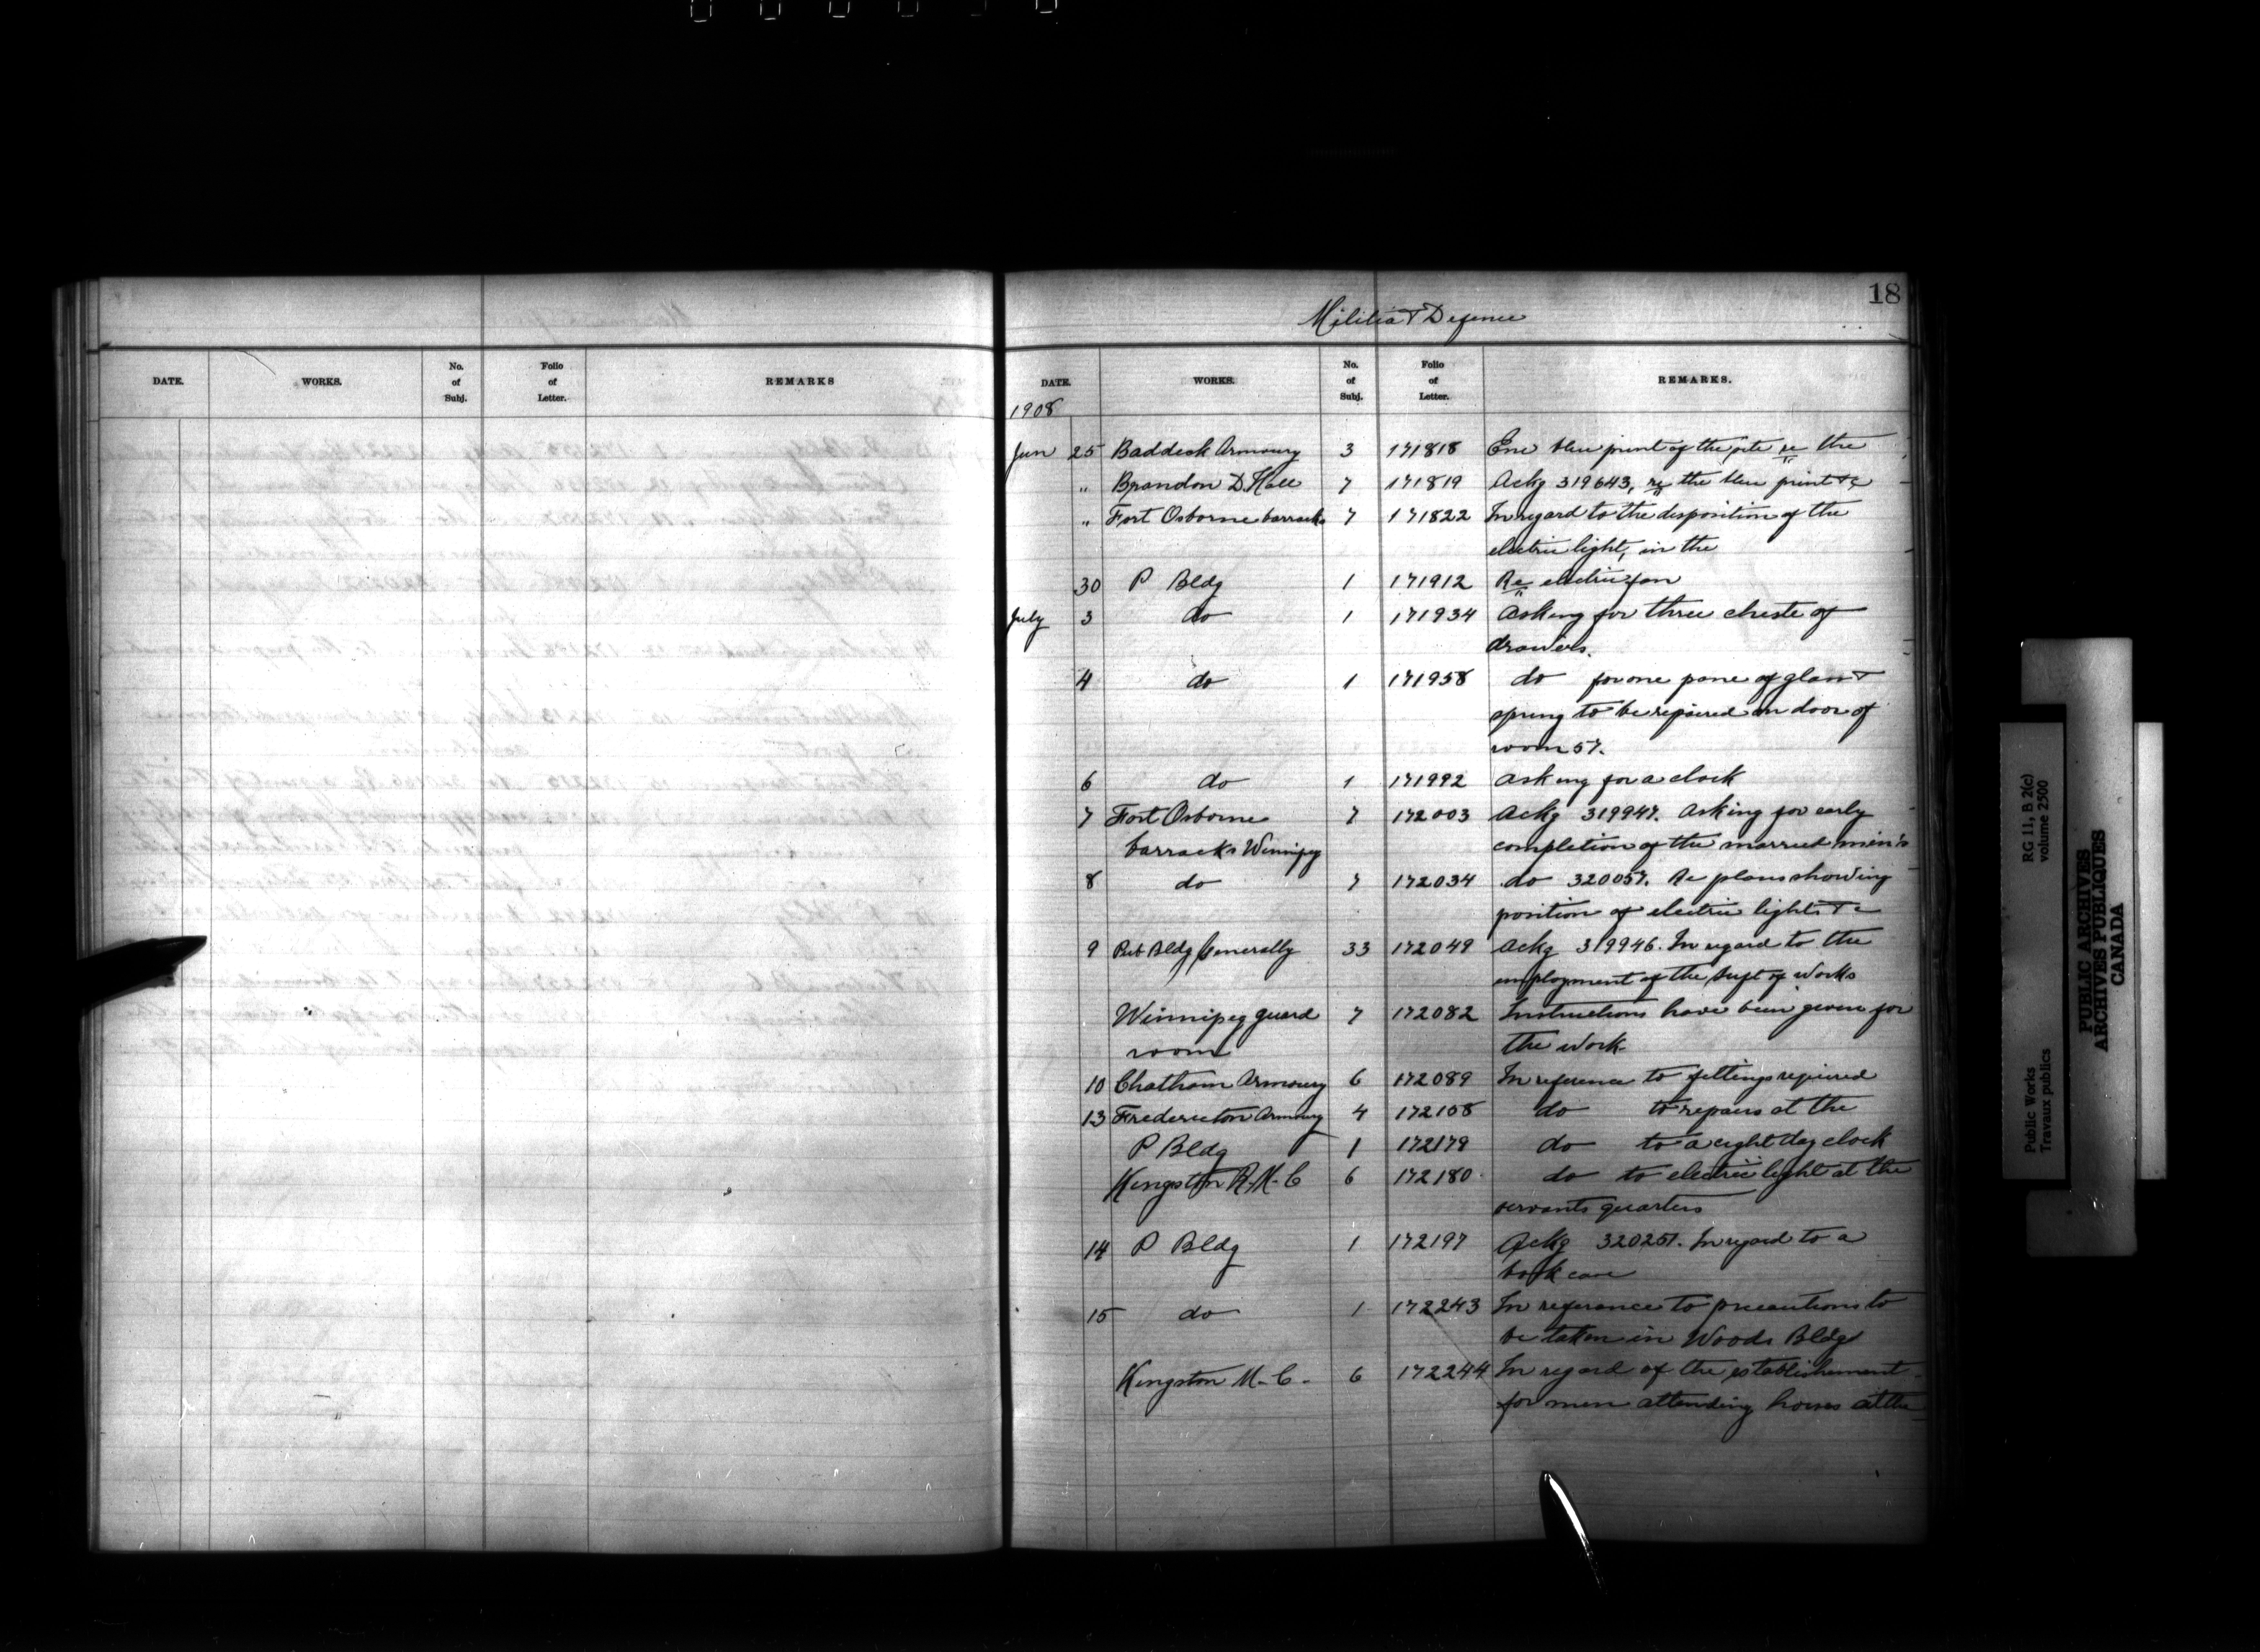 18
Militia & Defence
DATE. WORKS. No. of Subj. Folio of Letter. REMARKS
DATE. WORKS. No. of Subj. Folio of Letter. REMARKS.
1908
Jun 25 Baddeck Armoury 3 171818 Enc blue print of the site re the
" Brandon D. Hall 7 171819 Ackg 319643, re the blue print &c
" Fort Osborne barracks 7 171822 In regard to the disposition of the
electric light, in the
30 P Bldg 1 171912 Re electric fan
July 3 do 1 171934 Asking for three chests of
drawers.
4 do 1 171958 do for one pane of glass &
spring to be repaired on door of
room 57.
6 do 1 171992 Asking for a clock
7 Fort Osborne 7 172003 Ackg 319947. Asking for early
barracks Winnipeg completion of the married men's
8 do 7 172034 do 320057. Re plans showing
position of electric lights &c
9 Pub Bldg Generally 33 172049 Ackg 319946. In regard to the
employment of the Supt of Works
Winnipeg guard 7 172082 Instructions have been given for
room the work
10 Chatham Armoury 6 172089 In reference to fittings required
13 Fredericton Armoury 4 172158 do to repairs at the
P Bldg 1 172179 do to a eight day clock
Kingston R. M. C 6 172180 do to electric light at the
servants quarters
14 P Bldg 1 172197 Ackg 320257. In regard to a
book case
15 do 1 172243 In referance to precautions to
be taken in Woods Bldg
Kingston M. C. 6 172244 In regard of the establishment
for men attending horses at the
Public Works RG 11, B 2(c)
Travaux publics volume 2500
PUBLIC ARCHIVES
ARCHIVES PUBLIQUES
CANADA